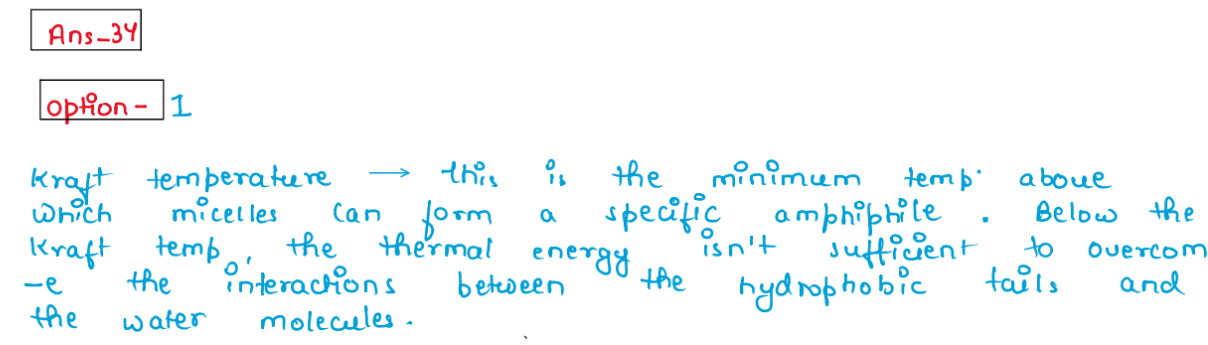 Ans-34
option- 1
Kraft temperature → this is the minimum temp. above
which micelles can form a specific amphiphile. Below the
Kraft temp, the thermal energy isn't sufficient to overcom
-e the interactions between the hydrophobic tails and
the water molecules.